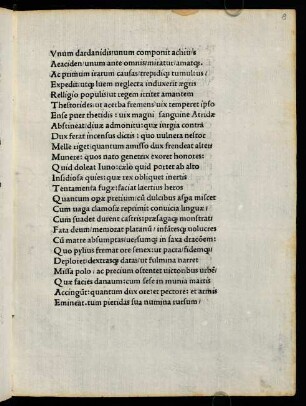 8
Vnum dardanidis: unum componit achiuis
Aeaciden: unum ante omnis miratur/ amatq;
Ac primum iratum causas/ trepidiq; tumultus/
Expedit: utq; luem neglecta induxerit ægris
Relligio populis: ut regem irritet amantem
Thestorides: ut acerba fremens uix temperet ipso
Ense puer thetidis: uix magni sanguine Atridæ
Abstineat: diuæ admonitu: quæ iurgia contra
Dux ferat incensus dictis: quo uulnera nestor
Melle riget: quantum amisso dux frendeat astris
Munere: quos nato genetrix exoret honores:
Quid doleat Iuno: cælo quid portet ab alto
Insidiosa quies: quæ rex obliquet inertis
Tentamenta fugæ: faciat lacertius heros
Quantum opæ pretium: cū dulcibus aspa miscet
Cum uaga clamosæ reprimit conuicia linguæ:
Cum suadet durent castris: præsagaq; monstrati
Fata deum: memorat platanū/ infātesq; uolucres
Cū matre absumptas: uersumq; in saxa dracōem:
Quo pylius fremat ore senex: ut pacta: fidemq;
Deploret: dextrasq; datas: ut fulmina narret
Missa polo/ ac precium ostentet uictoribus urbē/
Quæ facies danaum: cum sese in munia martis
Accingūt: quantum dux ore: et pectore: et armis
Emineat. tum pieridas sua numina rursum/